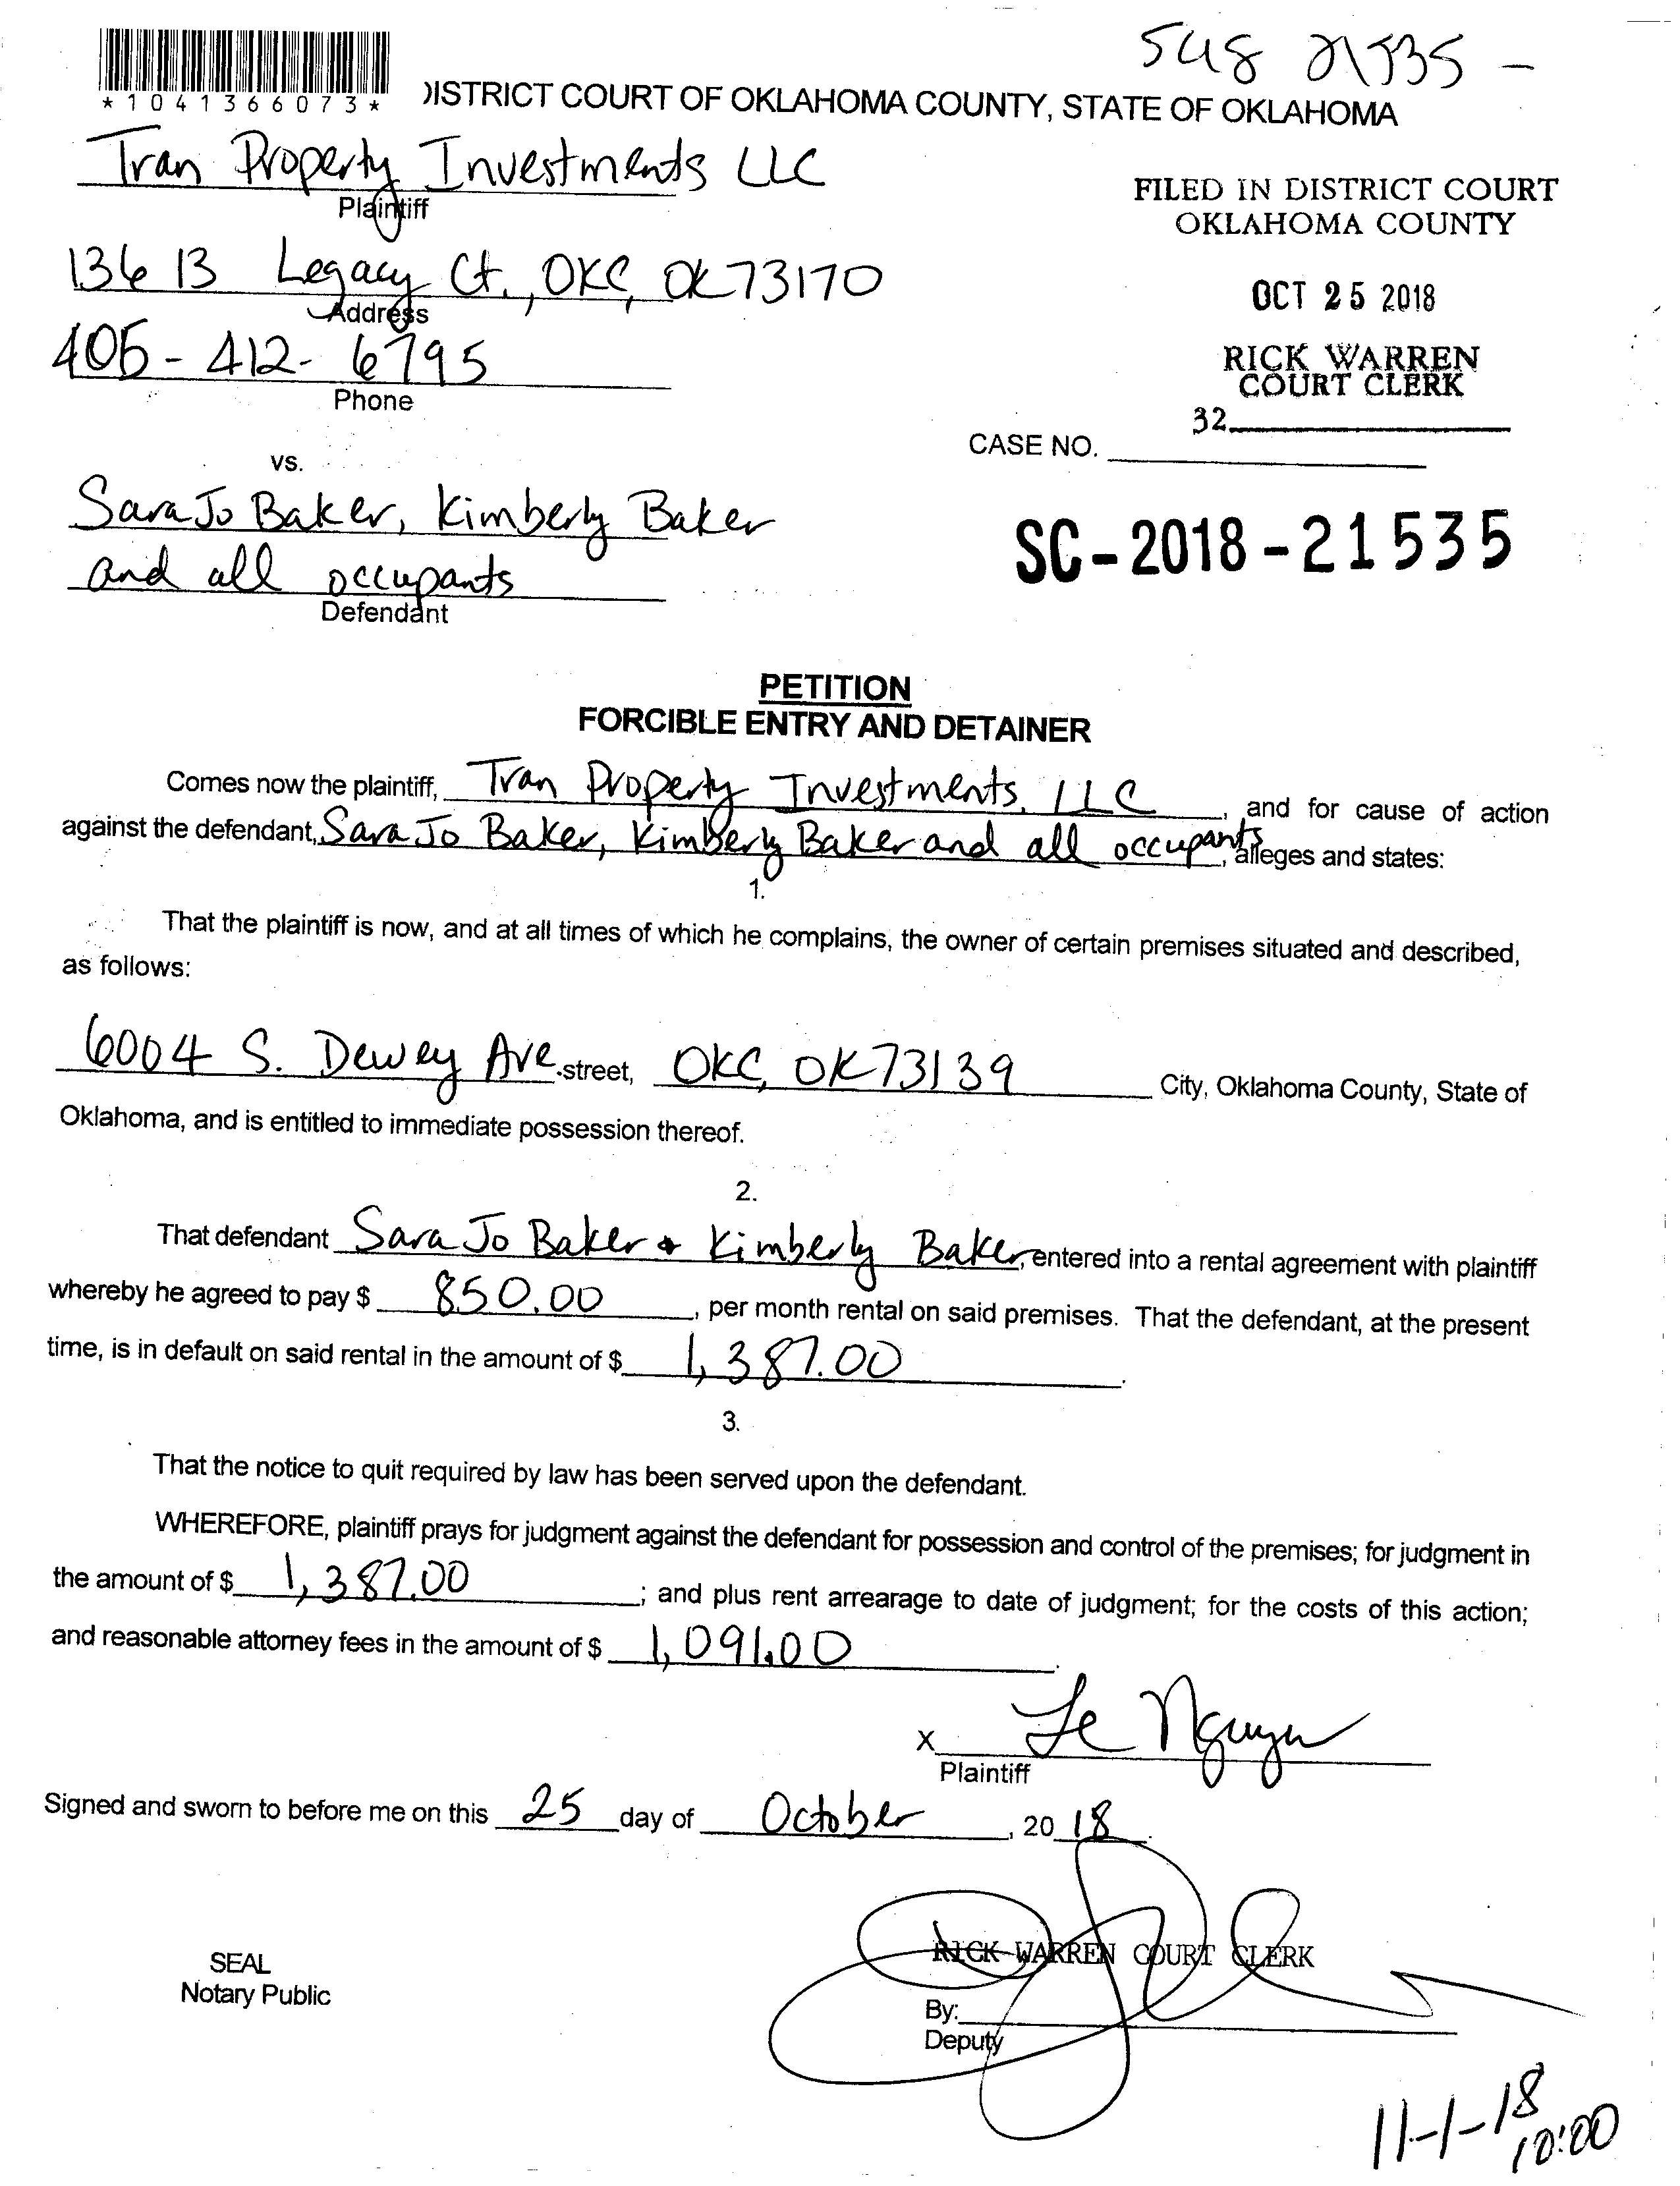 548 21535 -
*1041366073*
DISTRICT COURT OF OKLAHOMA COUNTY, STATE OF OKLAHOMA
Tran Property Investments LLC
Plaintiff
FILED IN DISTRICT COURT
OKLAHOMA COUNTY
13613 Legacy Ct., OKC, OK 73170
Address
OCT 25 2018
405-412-6795
Phone
RICK WARREN
COURT CLERK
32
CASE NO.
vs.
Sara Jo Baker, Kimberly Baker
and all occupants
Defendant
SC-2018-21535
PETITION
FORCIBLE ENTRY AND DETAINER
Comes now the plaintiff, Tran Property Investments, LLC, and for cause of action
against the defendant, Sara Jo Baker, Kimberly Baker and all occupants, alleges and states:
1.
That the plaintiff is now, and at all times of which he complains, the owner of certain premises situated and described,
as follows:
6004 S. Dewey Ave. street, OKC, OK 73139 City, Oklahoma County, State of
Oklahoma, and is entitled to immediate possession thereof.
2.
That defendant Sara Jo Baker + Kimberly Baker, entered into a rental agreement with plaintiff
whereby he agreed to pay $ 850.00, per month rental on said premises. That the defendant, at the present
time, is in default on said rental in the amount of $ 1,387.00.
3.
That the notice to quit required by law has been served upon the defendant.
WHEREFORE, plaintiff prays for judgment against the defendant for possession and control of the premises; for judgment in
the amount of $ 1,387.00; and plus rent arrearage to date of judgment; for the costs of this action;
and reasonable attorney fees in the amount of $ 1,091.00.
X Le Nguyen
Plaintiff
Signed and sworn to before me on this 25 day of October, 20 18.
RICK WARREN COURT CLERK
SEAL
Notary Public
By:
Deputy
11-1-18
10:00